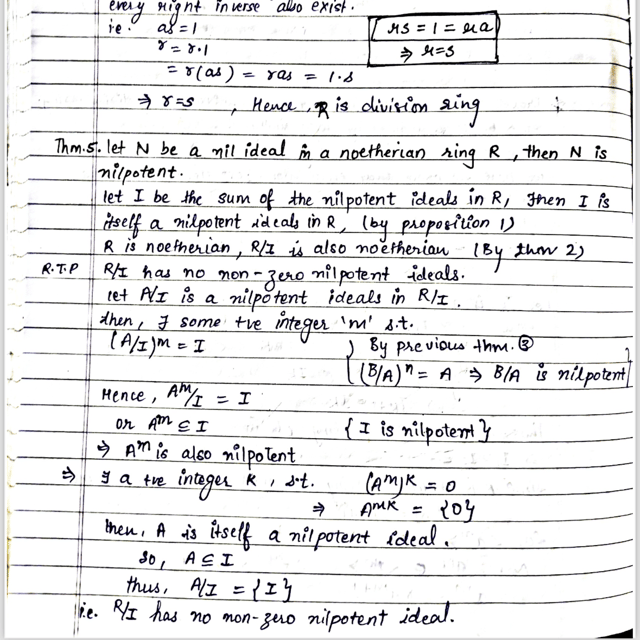 every right inverse also exist.
ie. as = 1
r = r.1
= r(as) = ras = 1.s
⇒ r=s , Hence, R is division ring
rs = 1 = ra
⇒ r=s
Thm.5. let N be a nil ideal in a noetherian ring R, then N is
nilpotent.
let I be the sum of the nilpotent ideals in R, then I is
itself a nilpotent ideals in R, (by proposition 1)
R is noetherian, R/I is also noetherian (By thm 2)
R.T.P R/I has no non-zero nilpotent ideals.
let A/I is a nilpotent ideals in R/I.
then, ∃ some +ve integer 'm' s.t.
(A/I)^m = I
} By previous thm. ③
{ (B/A)^n = A ⇒ B/A is nilpotent }
Hence, A^m/I = I
or A^m ⊆ I { I is nilpotent }
⇒ A^m is also nilpotent
⇒ ∃ a +ve integer K, s.t. (A^m)^K = 0
⇒ A^mK = {0}
then, A is itself a nilpotent ideal.
so, A ⊆ I
thus, A/I = {I}
i.e. R/I has no non-zero nilpotent ideal.